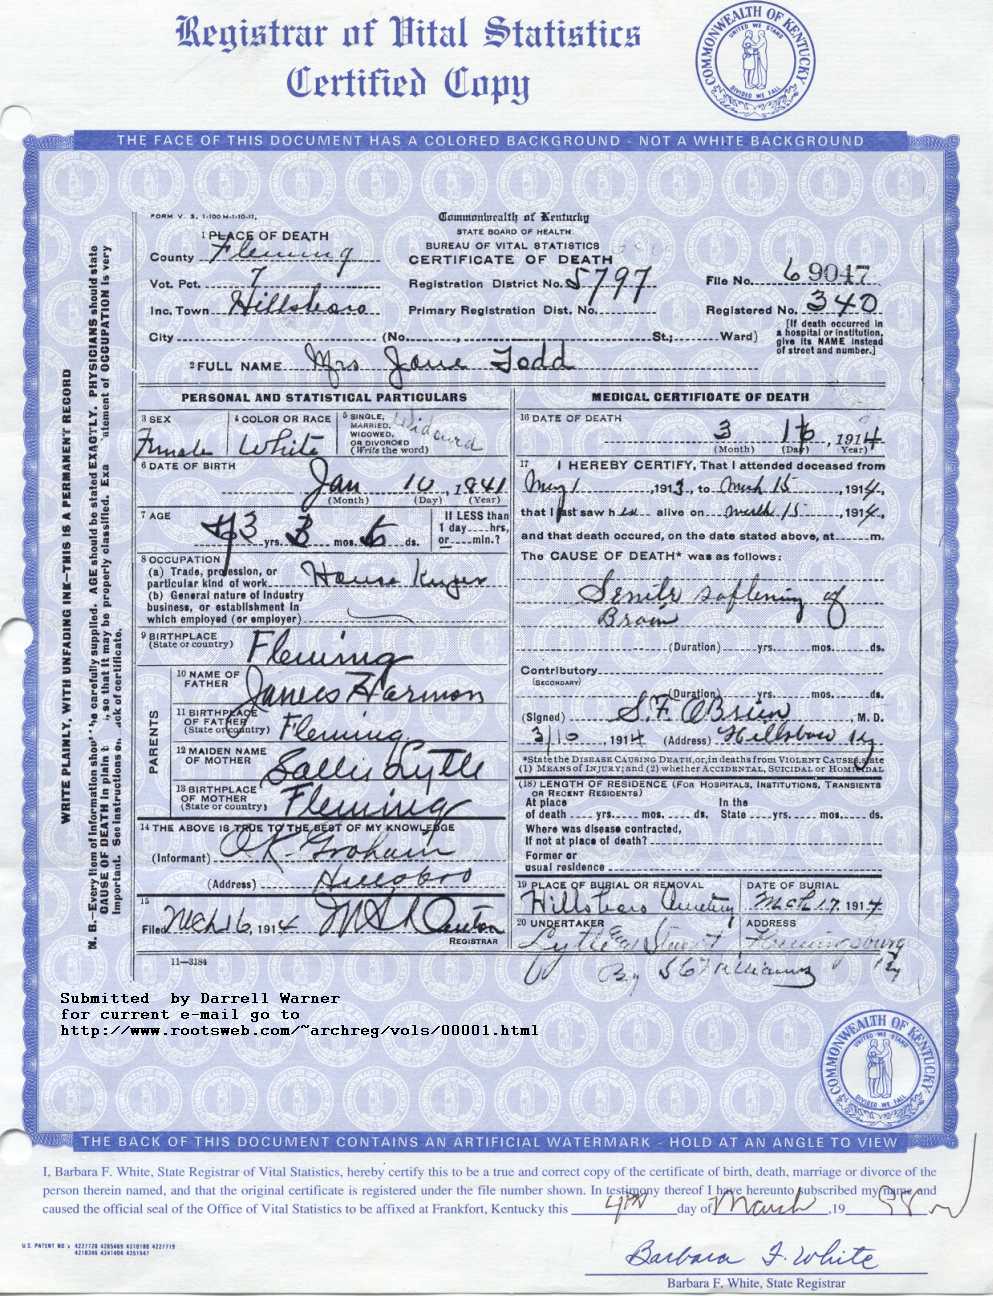 Registrar of Vital Statistics
Certified Copy
COMMONWEALTH OF KENTUCKY
UNITED WE STAND
DIVIDED WE FALL
THE FACE OF THIS DOCUMENT HAS A COLORED BACKGROUND - NOT A WHITE BACKGROUND
FORM V. S. 1-100 M-1-10-11.
Commonwealth of Kentucky
STATE BOARD OF HEALTH
BUREAU OF VITAL STATISTICS
CERTIFICATE OF DEATH
1 PLACE OF DEATH
County Fleming
Vot. Pct. 7
Inc. Town Hillsboro
City (No. , St.; Ward)
Registration District No. 5797
Primary Registration Dist. No.
File No. 69047
Registered No. 340
[If death occurred in
a hospital or institution,
give its NAME instead
of street and number.]
2 FULL NAME Mrs Jane Todd
PERSONAL AND STATISTICAL PARTICULARS
3 SEX
Female
4 COLOR OR RACE
White
5 SINGLE,
MARRIED,
WIDOWED,
OR DIVORCED
(Write the word)
Widowed
6 DATE OF BIRTH
Jan 10, 1841
(Month) (Day) (Year)
7 AGE
73 yrs. 3 mos. 6 ds.
If LESS than
1 day hrs,
or min.?
8 OCCUPATION
(a) Trade, profession, or
particular kind of work House Keeper
(b) General nature of Industry
business, or establishment in
which employed (or employer)
9 BIRTHPLACE
(State or country) Fleming
PARENTS
10 NAME OF
FATHER James Harmon
11 BIRTHPLACE
OF FATHER
(State or country) Fleming
12 MAIDEN NAME
OF MOTHER Sallie Lytle
13 BIRTHPLACE
OF MOTHER
(State or country) Fleming
14 THE ABOVE IS TRUE TO THE BEST OF MY KNOWLEDGE
(Informant) O K Graham
(Address) Hillsboro
15
Filed Mch 16, 1914
REGISTRAR
11-3184
MEDICAL CERTIFICATE OF DEATH
16 DATE OF DEATH
3 16, 1914
(Month) (Day) (Year)
17 I HEREBY CERTIFY, That I attended deceased from
May 1, 1913, to Mch 15, 1914,
that I last saw her alive on March 15, 1914,
and that death occured, on the date stated above, at m.
The CAUSE OF DEATH* was as follows:
Senile softening of
Brain
(Duration) yrs. mos. ds.
Contributory
(SECONDARY)
(Duration) yrs. mos. ds.
(Signed) S. F. O'Brien, M. D.
3/10, 1914 (Address) Hillsboro Ky
*State the DISEASE CAUSING DEATH, or, in deaths from VIOLENT CAUSES, state
(1) MEANS OF INJURY; and (2) whether ACCIDENTAL, SUICIDAL or HOMICIDAL
(18) LENGTH OF RESIDENCE (FOR HOSPITALS, INSTITUTIONS, TRANSIENTS
OR RECENT RESIDENTS)
At place In the
of death yrs. mos. ds. State yrs. mos. ds.
Where was disease contracted,
If not at place of death?
Former or
usual residence
19 PLACE OF BURIAL OR REMOVAL
Hillsboro Cemetery
DATE OF BURIAL
Mch 17, 1914
20 UNDERTAKER
Lytle & Stewart
ADDRESS
Flemingsburg
Ky
By Williams
WRITE PLAINLY, WITH UNFADING INK—THIS IS A PERMANENT RECORD
N. B.—Every item of information should be carefully supplied. AGE should be stated EXACTLY. PHYSICIANS should state
CAUSE OF DEATH in plain , so that it may be properly classified. Exa atement of OCCUPATION is very
important. See instructions on ack of certificate.
Submitted by Darrell Warner
for current e-mail go to
http://www.rootsweb.com/~archreg/vols/00001.html
COMMONWEALTH OF KENTUCKY
UNITED WE STAND
DIVIDED WE FALL
THE BACK OF THIS DOCUMENT CONTAINS AN ARTIFICIAL WATERMARK - HOLD AT AN ANGLE TO VIEW
I, Barbara F. White, State Registrar of Vital Statistics, hereby certify this to be a true and correct copy of the certificate of birth, death, marriage or divorce of the
person therein named, and that the original certificate is registered under the file number shown. In testimony thereof I have hereunto subscribed my name and
caused the official seal of the Office of Vital Statistics to be affixed at Frankfort, Kentucky this 4th day of March, 1998
Barbara F. White
Barbara F. White, State Registrar